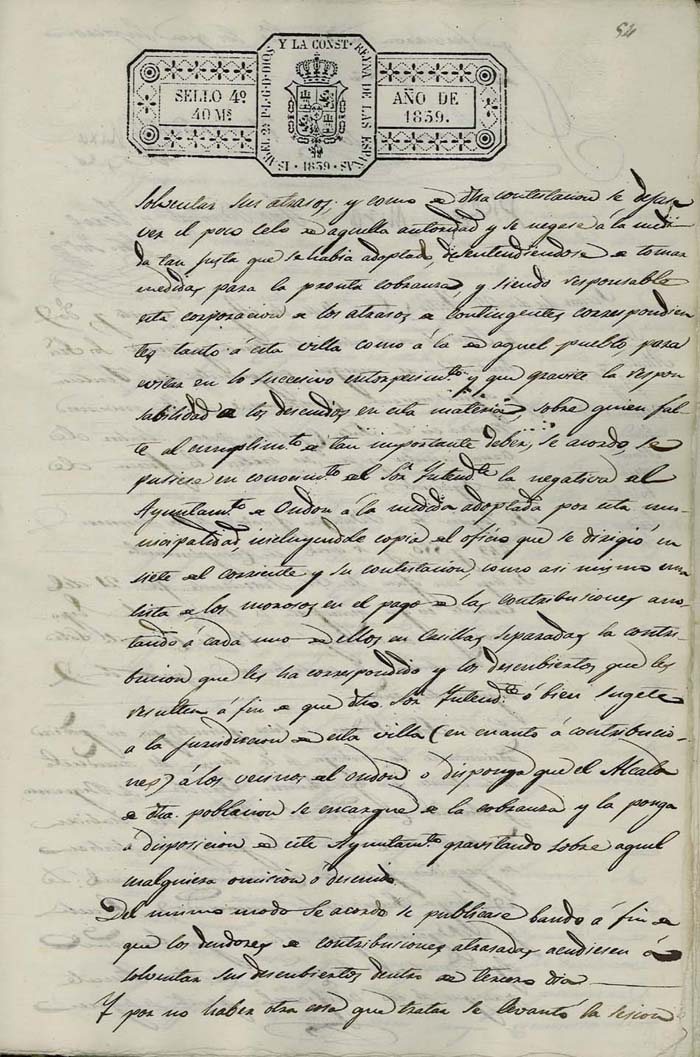 54
Y LA CONST. REYNA DE LAS ESPAÑAS
ISABEL 2ª P. L. G. D. DIOS
SELLO 4º
40 Mˢ
AÑO DE
1839.
1839
solventar sus atrasos; y como de dha contestacion se deja
ver el poco celo de aquella autoridad y se negase á la medi
da tan justa que se habia adoptado, desentendiendose de tomar
medidas para la pronta cobranza, y siendo responsable
esta corporacion de los atrasos de contingentes correspondien
tes tanto á esta villa como á la de aquel pueblo, para
evitar en lo sucesivo entorpecimtº y que gravite la respon
sabilidad de los descuidos en esta materia, sobre quien fal-
te al cumplimtº de tan importante deber, se acordo, se
pusiese en conocimtº del Sor Intendte la negativa del
Ayuntamtº de Ondon á la medida adoptada por esta mu-
nicipalidad, incluyendole copia del oficio que se dirigió en
siete del corriente y su contestacion, como asi mismo una
lista de los morosos en el pago de las contribuciones ano-
tando á cada uno de ellos en casillas separadas la contri-
bucion que les ha correspondido y los descubiertos que les
resulten á fin de que dho. Sor Intendte ó bien sugete
a la jurisdiccion de esta villa (en cuanto á contribucio-
nes) á los vecinos del ondon ó disponga que el Alcalde
de dha. poblacion se encargue de la cobranza y la ponga
á disposicion de este Ayuntamtº gravitando sobre aquel
cualquiera omision ó descuido.
Del mismo modo se acordo se publicase bando á fin de
que los deudores de contribuciones atrasadas acudiesen á
solventar sus descubiertos dentro de tercero dia
Y por no haber otra cosa que tratar se levantó la sesion